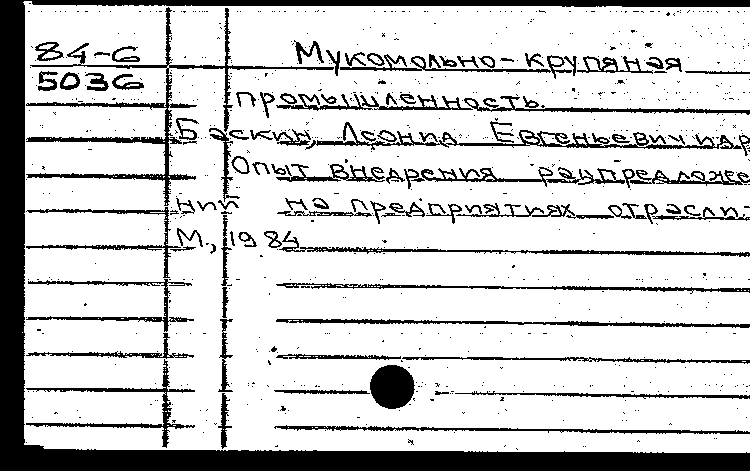 84-6 Мукомольно-крупяная
5036
промышленность.
Баскин, Леонид Евгеньевич и др
Опыт внедрения рацпредложе
ний на предприятиях отрасли.
М., 1984